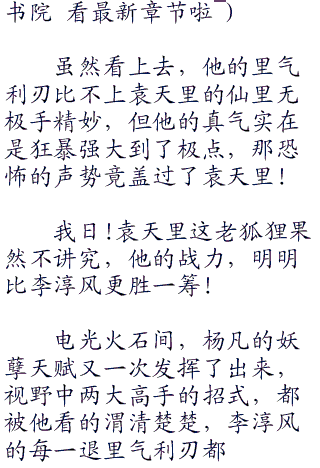 书院 看最新章节啦¯)
虽然看上去，他的里气
利刃比不上袁天里的仙里无
极手精妙，但他的真气实在
是狂暴强大到了极点，那恐
怖的声势竟盖过了袁天里！
我日！袁天里这老狐狸果
然不讲究，他的战力，明明
比李淳风更胜一筹！
电光火石间，杨凡的妖
孽天赋又一次发挥了出来，
视野中两大高手的招式，都
被他看的渭清楚楚，李淳风
的每一退里气利刃都